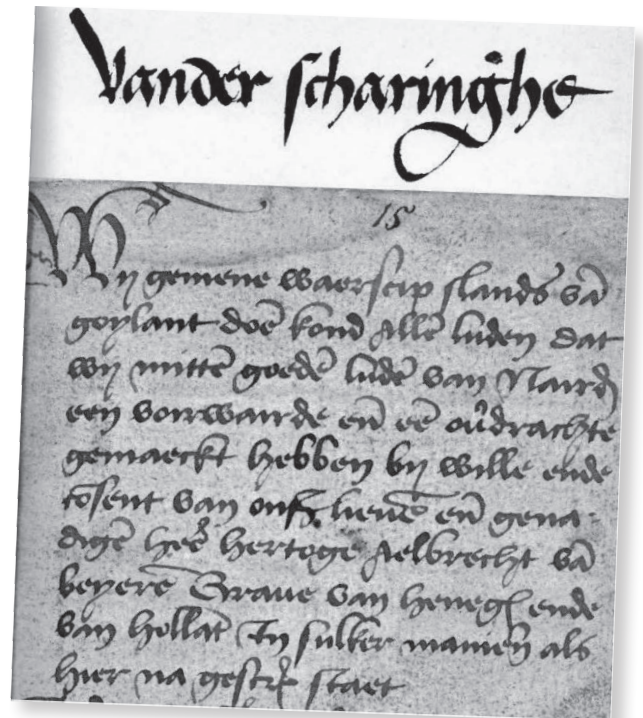 Vander scharinghe
15
Wij gemene waerscip slands vā
goylant doē kond allē luden dat
wij mittē goedē ludē van Nard
een vorwairde eñ eē ou̓drachte
gemaeckt hebben bij wille ende
cōsent van lieuē eñ gena-
digē heē hertoge Aelbrecht vā
beyerē Graue van heneg ende
van hollāt In sulker maniē als
hier na staet